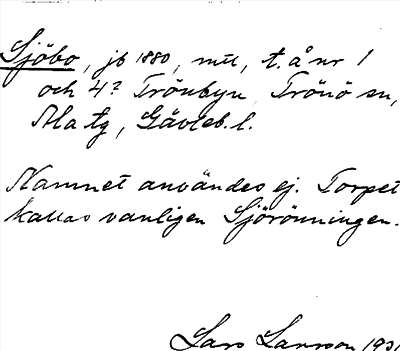 Sjöbo, jb 1880, mtl, t. å nr 1
och 4? Trönbyn Trönö sn,
Ala tg, Gävleb. l.
Namnet användes ej. Torpet
kallas vanligen Sjörönningen.
Lars Larsson 1931